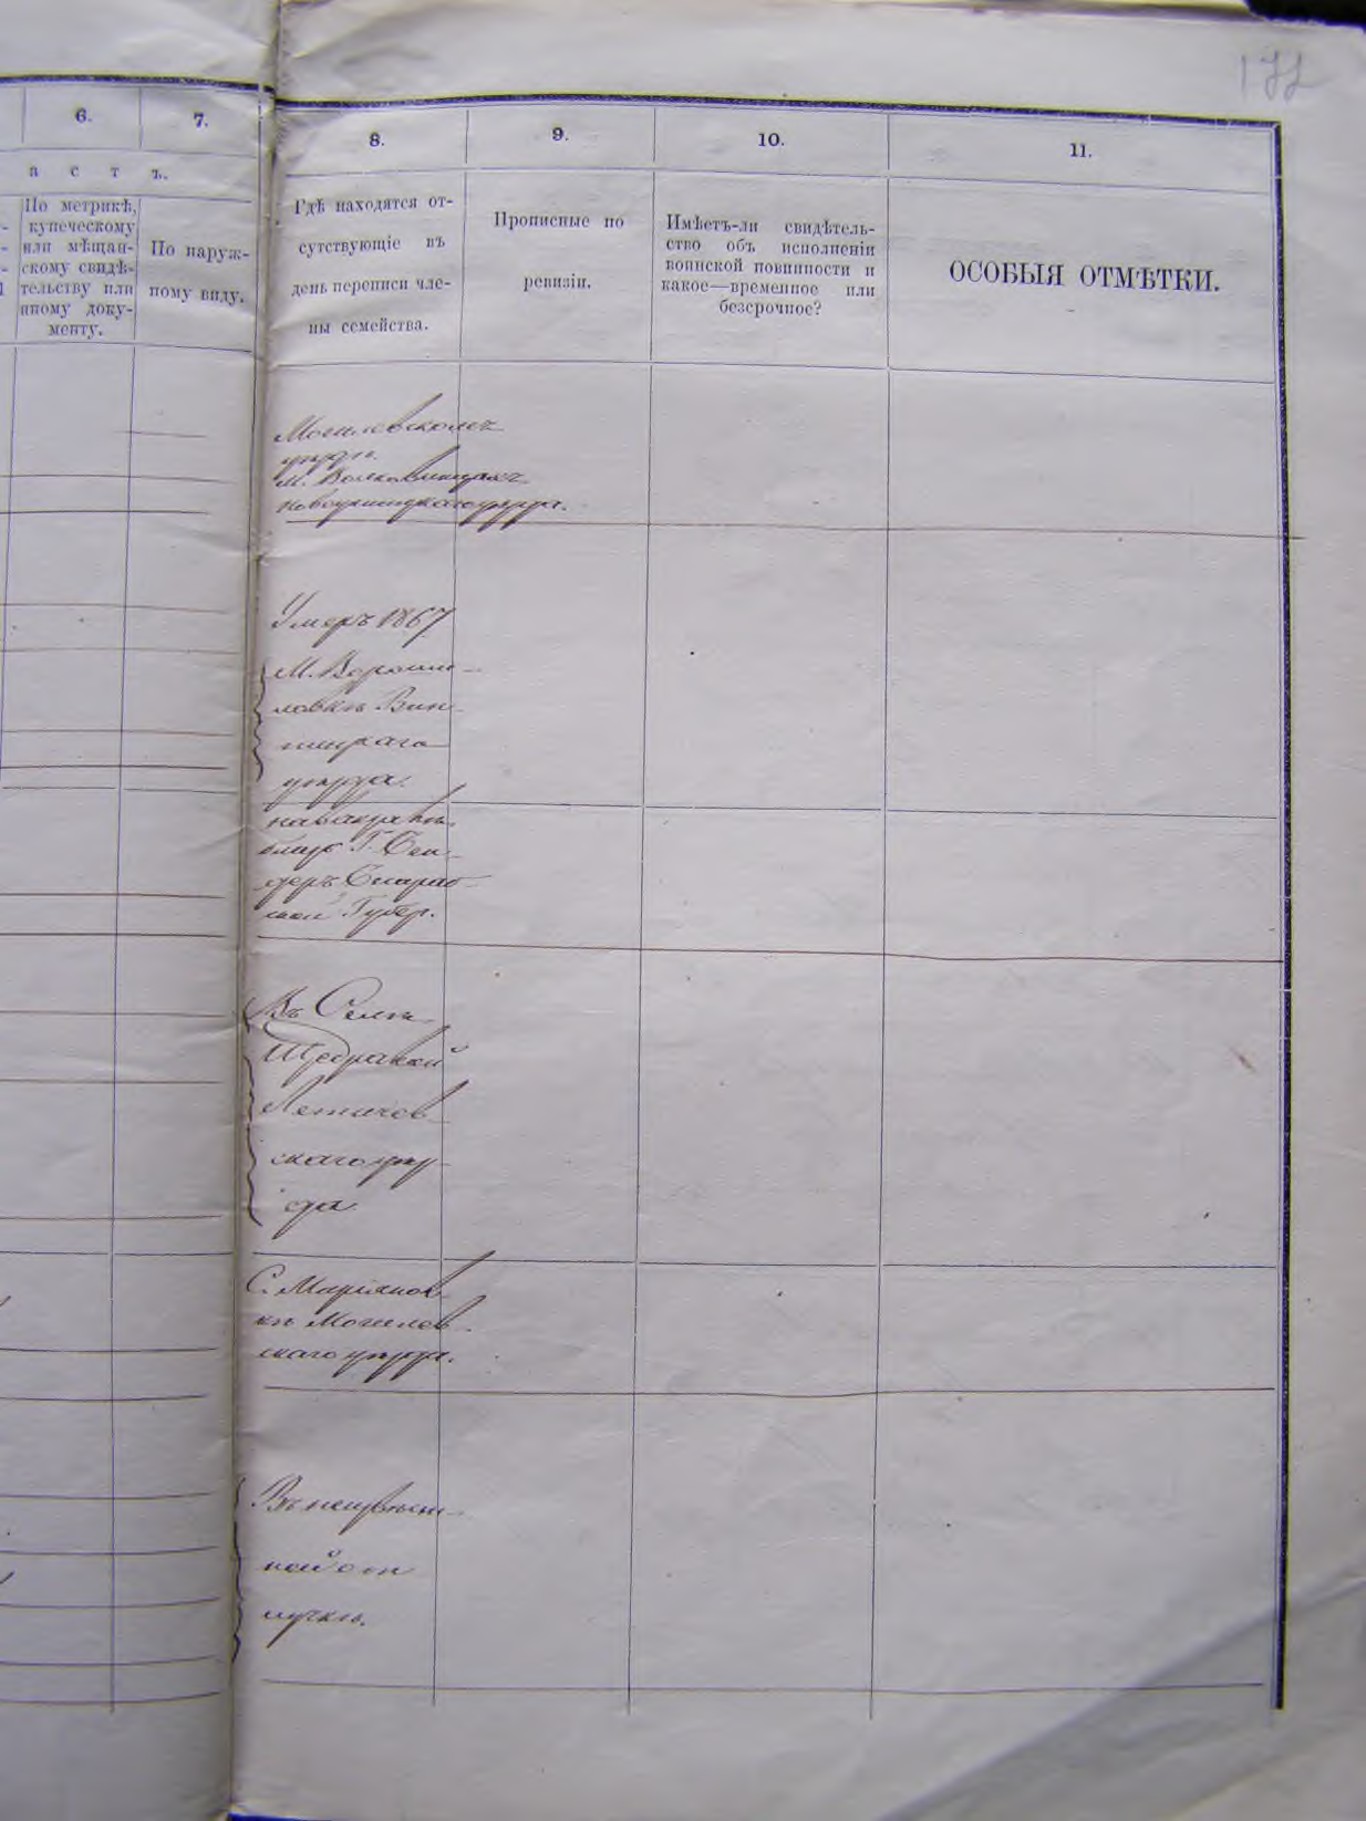 172
6.
7.
8.
9.
10.
11.
а с т ъ.
По метрикѣ,
купеческому
или мѣщан-
скому свидѣ-
тельству или
иному доку-
менту.
По наруж-
ному виду.
Гдѣ находятся от-
сутствующіе въ
день переписи чле-
ны семейства.
Прописные по
ревизіи.
Имѣетъ-ли свидѣтель-
ство объ исполненіи
воинской повинности и
какое—временное или
безсрочное?
ОСОБЫЯ ОТМѢТКИ.
Могилевскомъ
уѣздѣ.
М. Волковинцахъ
Новоушицкаго уѣзда.
Умеръ 1867
М. Вороши-
ловкѣ Вин-
ницкаго
уѣзда.
Губер.
Въ Селѣ
Щедравкой
Летичев-
скаго уѣз-
да
С. Маріянов-
кѣ Могилев-
скаго уѣзда.
Въ неизвѣст-
ной от-
лучкѣ.